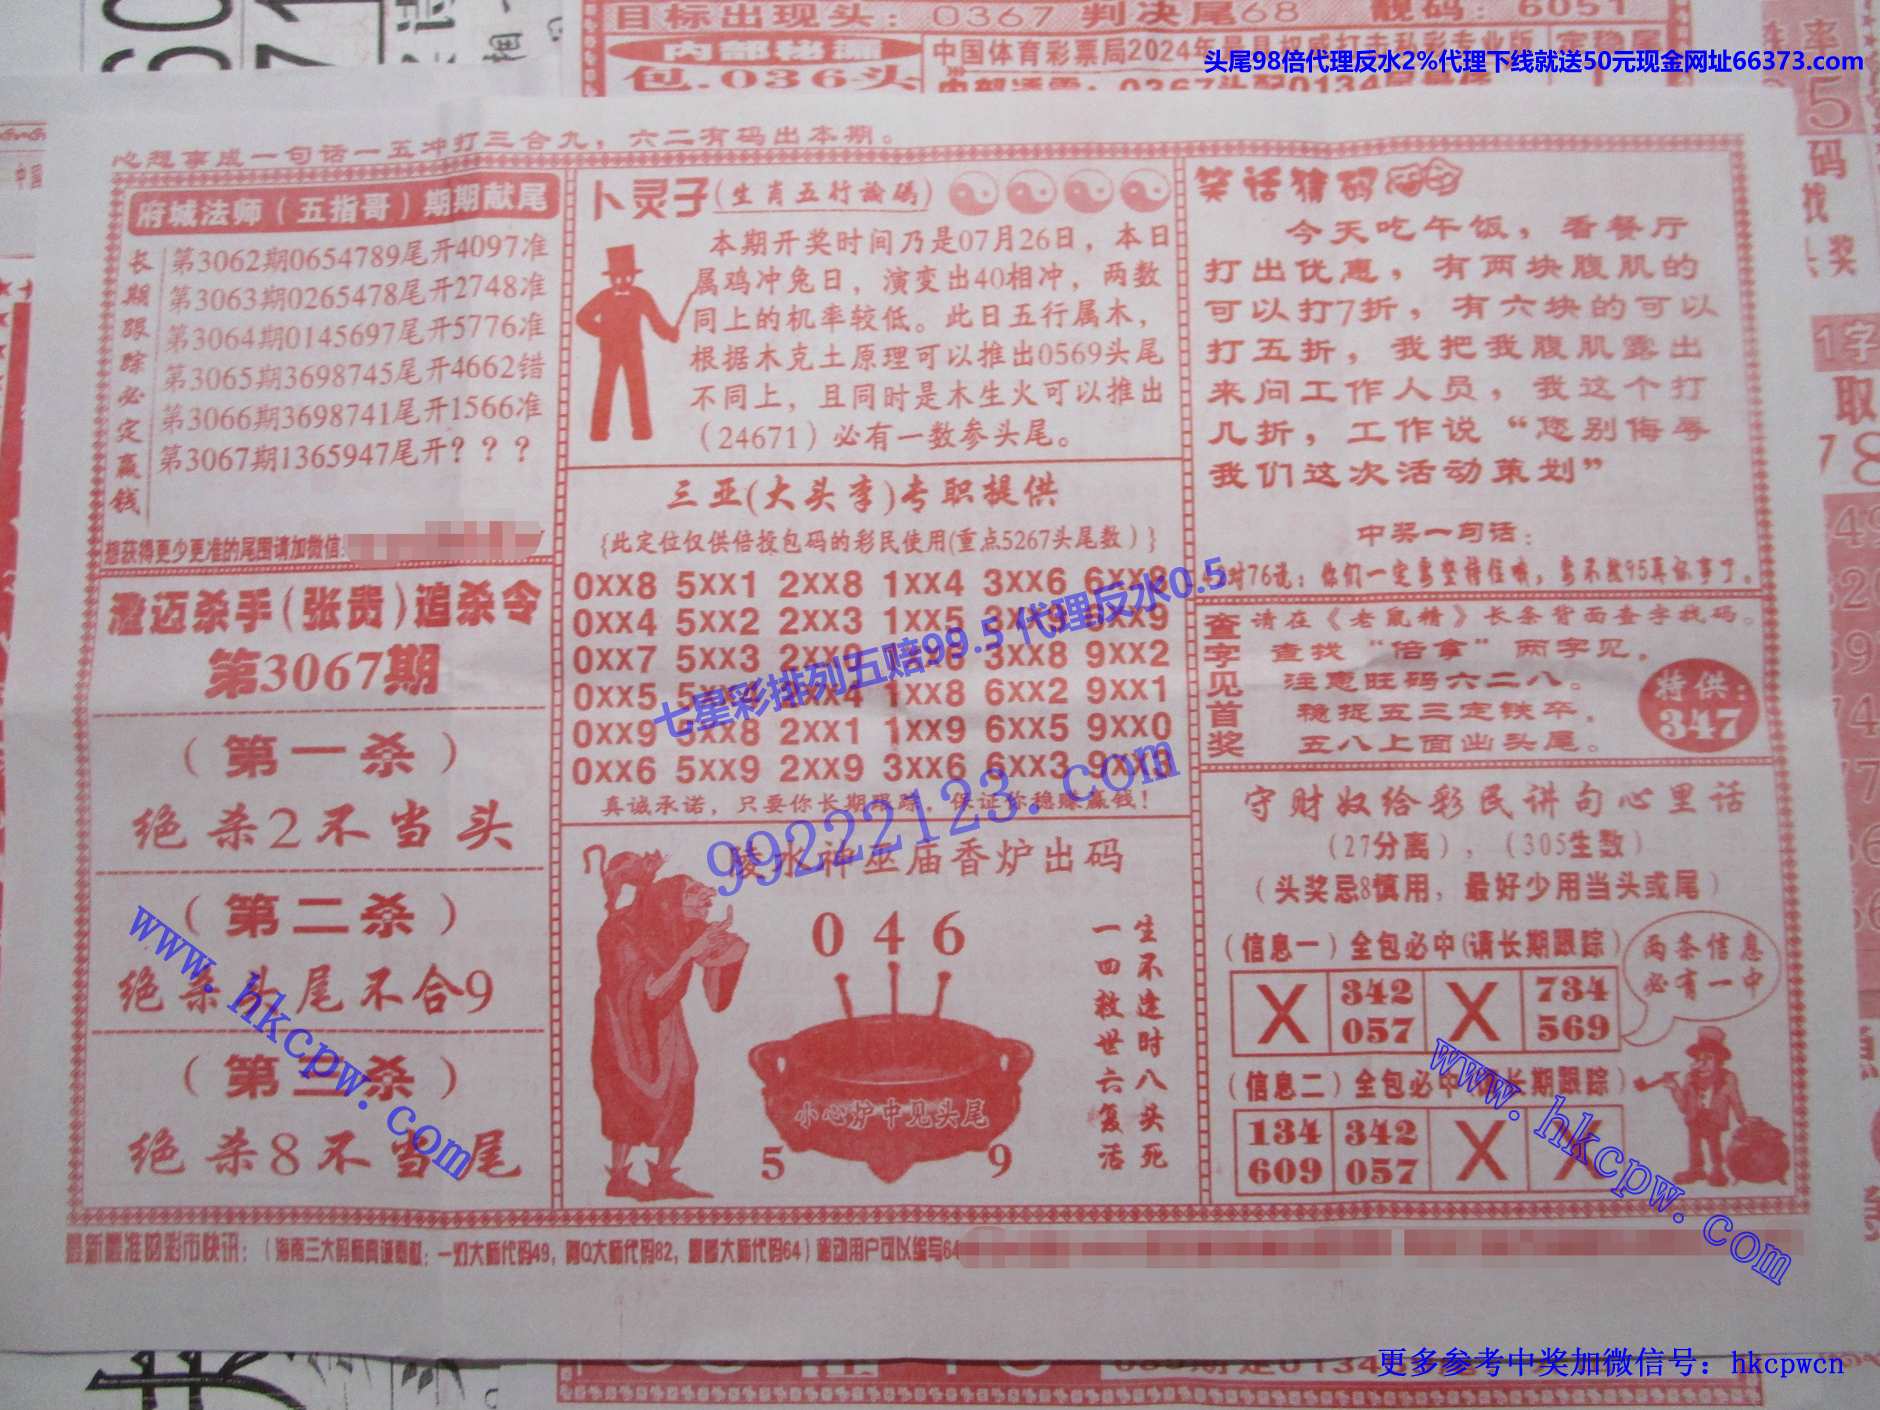 目标出现头：0367 判决尾68 靓码：6051
中国体育彩票局2024年
包.036头
头尾98倍代理反水2%代理下线就送50元现金网址66373.com
心想事成一句话一五冲打三合九，六二有码出本期。
府城法师（五指哥）期期献尾
长期跟踪必定赢钱
第3062期0654789尾开4097准
第3063期0265478尾开2748准
第3064期0145697尾开5776准
第3065期3698745尾开4662错
第3066期3698741尾开1566准
第3067期1365947尾开？？？
想获得更少更准的尾围请加微信:
澄迈杀手(张贵)追杀令
第3067期
（第一杀）
绝杀2不当头
（第二杀）
绝杀头尾不合9
（第三杀）
绝杀8不当尾
卜灵子(生肖五行论码)
本期开奖时间乃是07月26日，本日
属鸡冲兔日，演变出40相冲，两数
同上的机率较低。此日五行属木，
根据木克土原理可以推出0569头尾
不同上，且同时是木生火可以推出
（24671）必有一数参头尾。
三亚(大头李)专职提供
{此定位仅供倍投包码的彩民使用(重点5267头尾数）}
0XX8 5XX1 2XX8 1XX4 3XX6 6XX8
0XX4 5XX2 2XX3 1XX5 3XX9 6XX9
0XX7 5XX3 2XX0 1XX6 3XX8 9XX2
0XX5 5XX4 2XX4 1XX8 6XX2 9XX1
0XX9 5XX8 2XX1 1XX9 6XX5 9XX0
0XX6 5XX9 2XX9 3XX6 6XX3 9XX3
真诚承诺，只要你长期跟踪，保证你稳赚赢钱！
七星彩排列五赔99.5 代理反水0.5
99222123.com
陵水神巫庙香炉出码
0 4 6
小心炉中见头尾
5 9
一四救世六复活
生不逢时八头死
笑话猜码
今天吃午饭，看餐厅
打出优惠，有两块腹肌的
可以打7折，有六块的可以
打五折，我把我腹肌露出
来问工作人员，我这个打
几折，工作说“您别侮辱
我们这次活动策划”
中奖一句话：
对76说：你们一定要坚持住哦，要不找95真坏事了。
查字见首奖
请在《老鼠精》长条背面查字找码。
查找“倍拿”两字见，
注意旺码六二八。
稳捉五三定铁卒，
五八上面出头尾。
特供：
347
守财奴给彩民讲句心里话
（27分离），（305生数）
（头奖忌8慎用，最好少用当头或尾）
（信息一）全包必中(请长期跟踪）
X 342 X 734
057 569
两条信息
必有一中
（信息二）全包必中(请长期跟踪）
134 342 X X
609 057
www.hkcpw.com
www.hkcpw.com
最新最准的彩市快讯：（海南三大码师真诚奉献：一灯大师代码49，阿Q大师代码82，最爱大师代码64）移动用户可以编写64
更多参考中奖加微信号：hkcpwcn